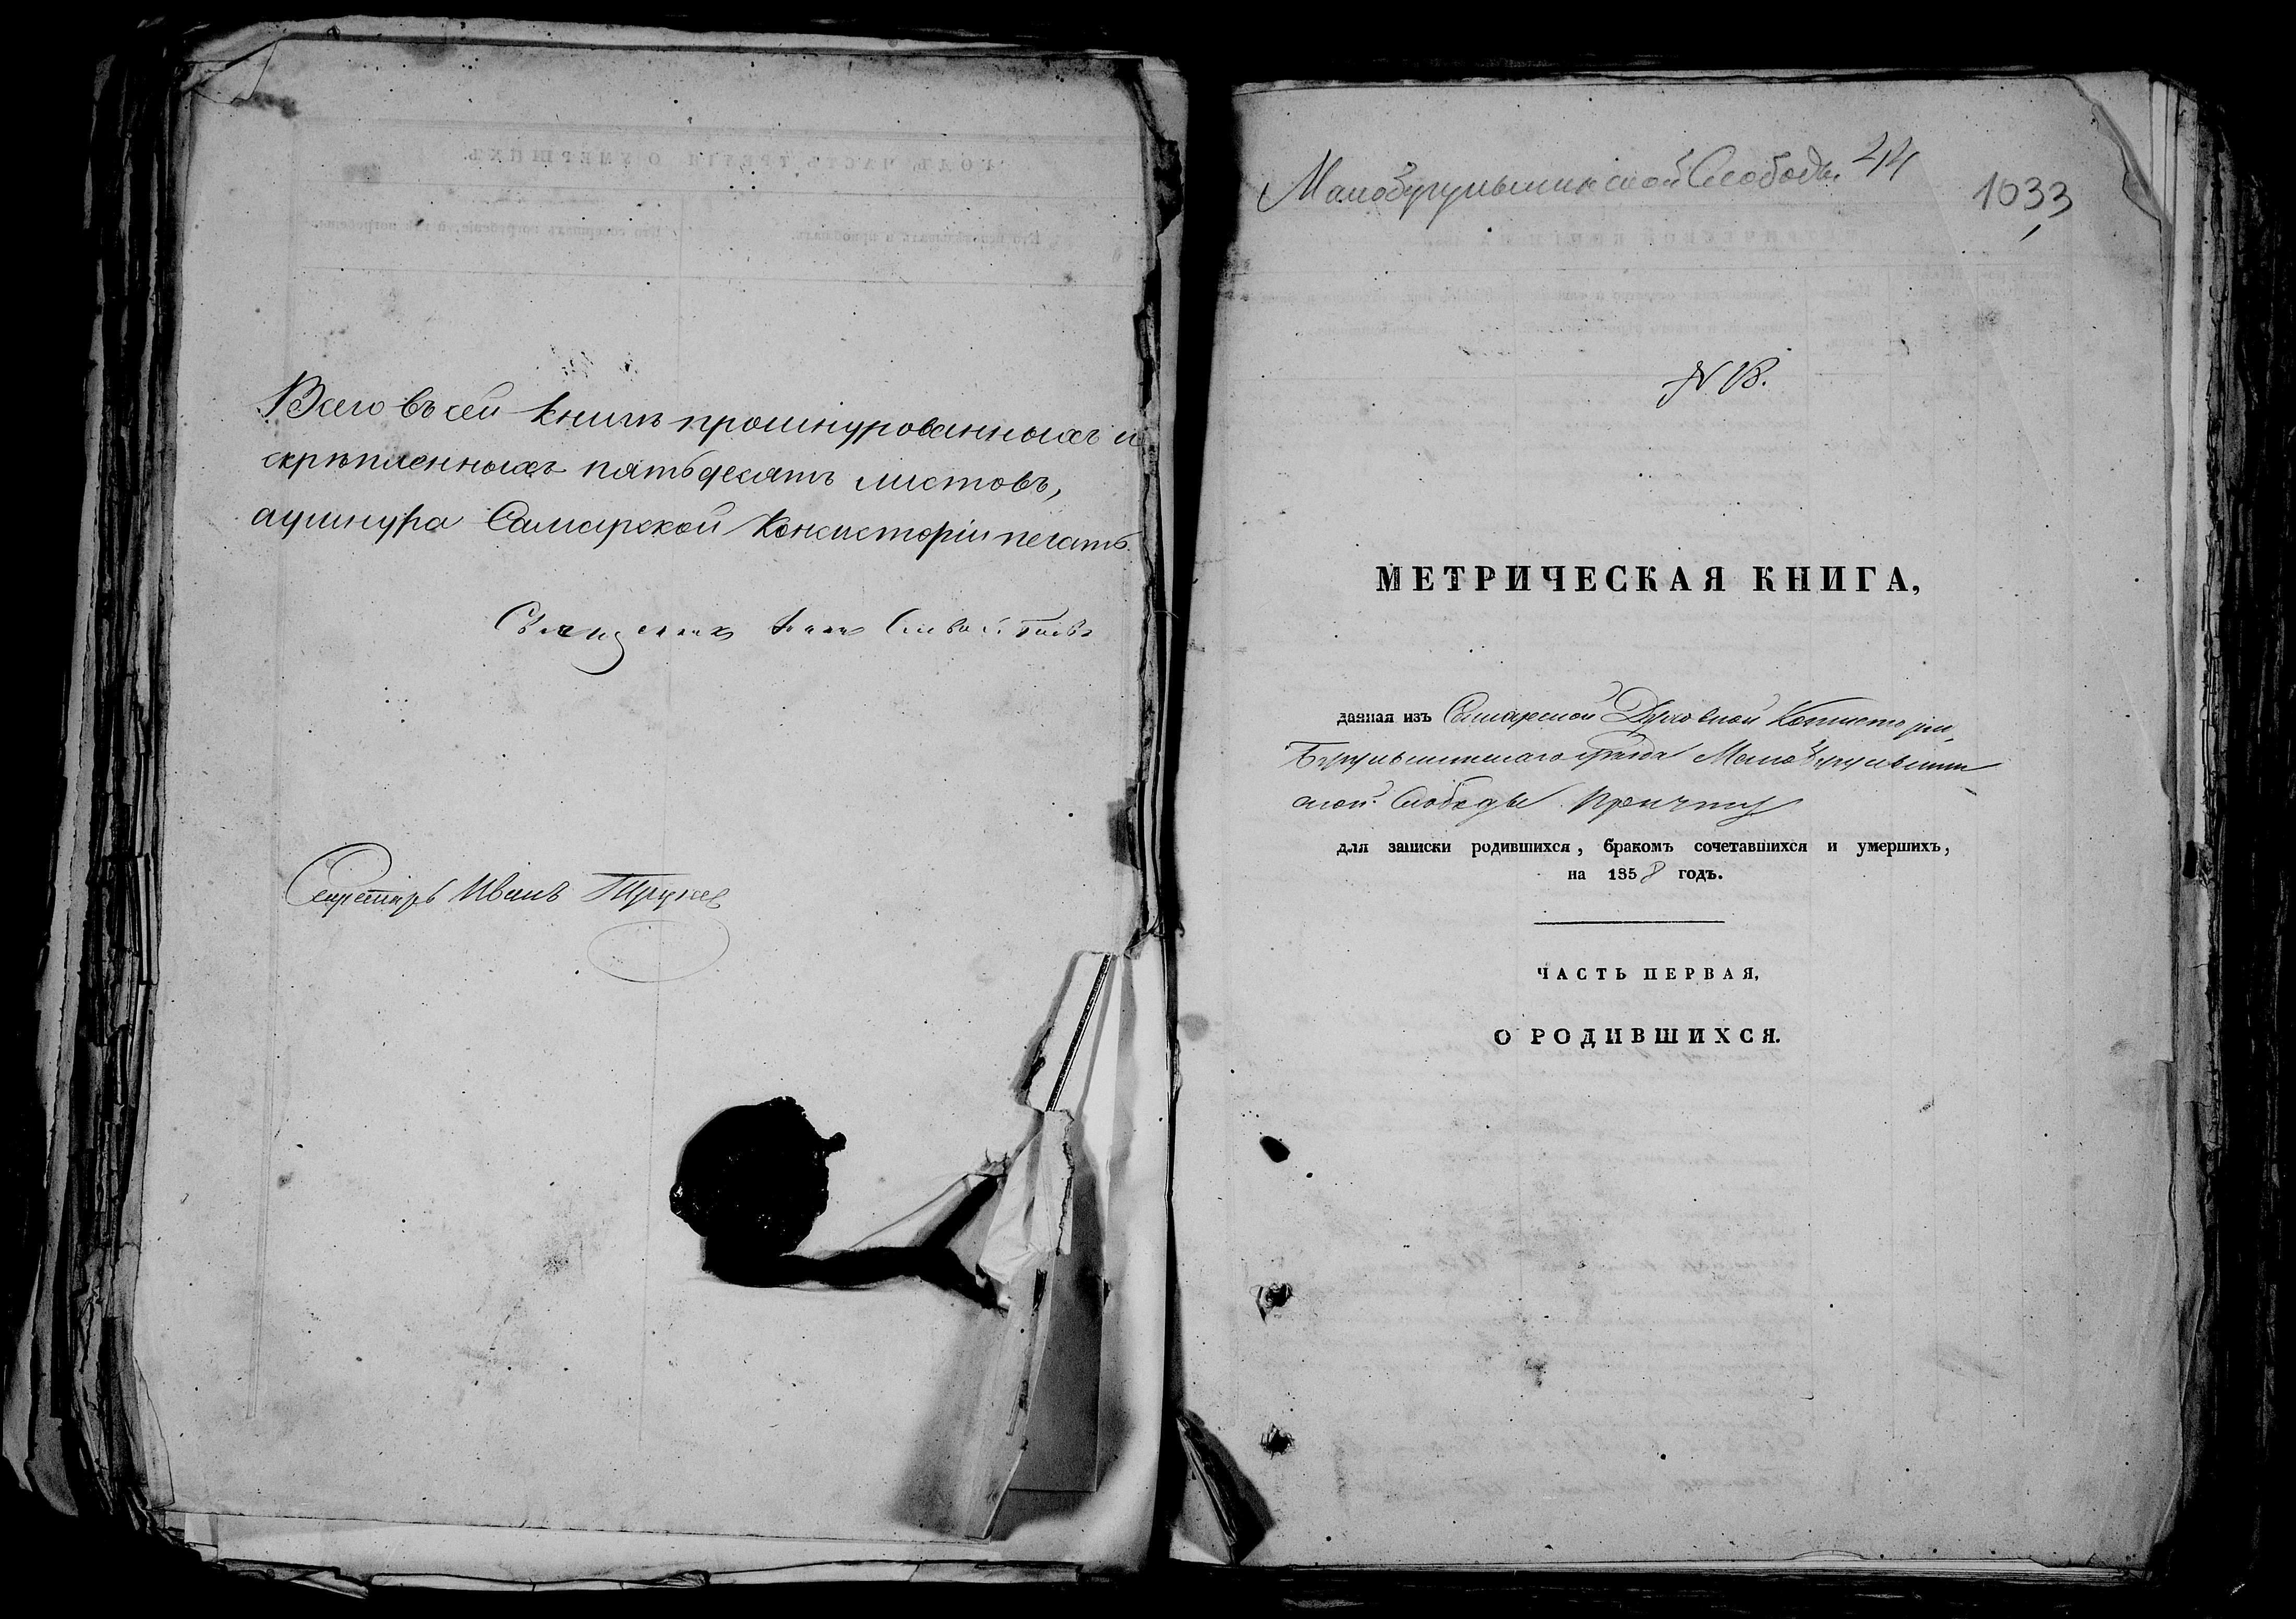 Всего въ сей книгѣ прошнурованныхъ и
скрѣпленныхъ пятьдесятъ листовъ,
а у шнура Самарской Консисторіи печать.
Священникъ
Секретарь Иванъ
Малобугульминской Слободы 44
1033
N 18.
МЕТРИЧЕСКАЯ КНИГА,
данная изъ Самарской Духовной Консисторіи,
Бугульминскаго уѣзда Малобугульмин
ской Слободы Причту
для записки родившихся, бракомъ сочетавшихся и умершихъ,
на 1858 годъ.
ЧАСТЬ ПЕРВАЯ,
О РОДИВШИХСЯ.